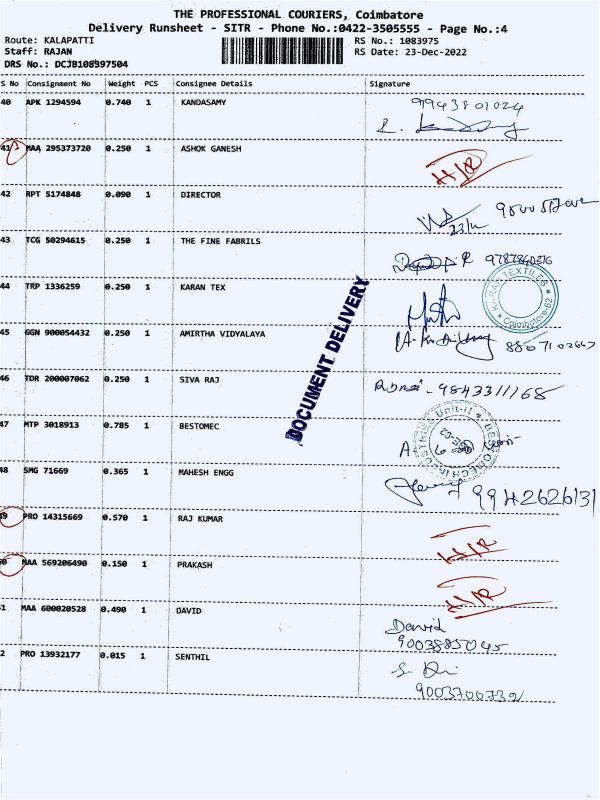 THE PROFESSIONAL COURIERS, Coimbatore
Delivery Runsheet - SITR - Phone No.:0422-3505555 - Page No.:4
Route: KALAPATTI RS No.: 1083975
Staff: RAJAN RS Date: 23-Dec-2022
DRS No.: DCJB108397504
S No Consignment No Weight PCS Consignee Details Signature
40 APK 1294594 0.740 1 KANDASAMY 9943801024
41 MAA 295373720 0.250 1 ASHOK GANESH H/R
42 RPT 5174848 0.090 1 DIRECTOR
43 TCG 50294615 0.250 1 THE FINE FABRILS 9787840376
44 TRP 1336259 0.250 1 KARAN TEX
KARAN TEXTILES
Coimbatore-62
45 GGN 900054432 0.250 1 AMIRTHA VIDYALAYA 8867102667
DOCUMENT DELIVERY
46 TDR 200007062 0.250 1 SIVA RAJ 9843311168
47 MTP 3018913 0.785 1 BESTOMEC
48 SMG 71669 0.365 1 MAHESH ENGG 9942626131
49 PRO 14315669 0.570 1 RAJ KUMAR H/R
50 MAA 569206490 0.150 1 PRAKASH H/R
1 MAA 600020528 0.490 1 DAVID David
9003885045
2 PRO 13932177 0.015 1 SENTHIL
9003700732